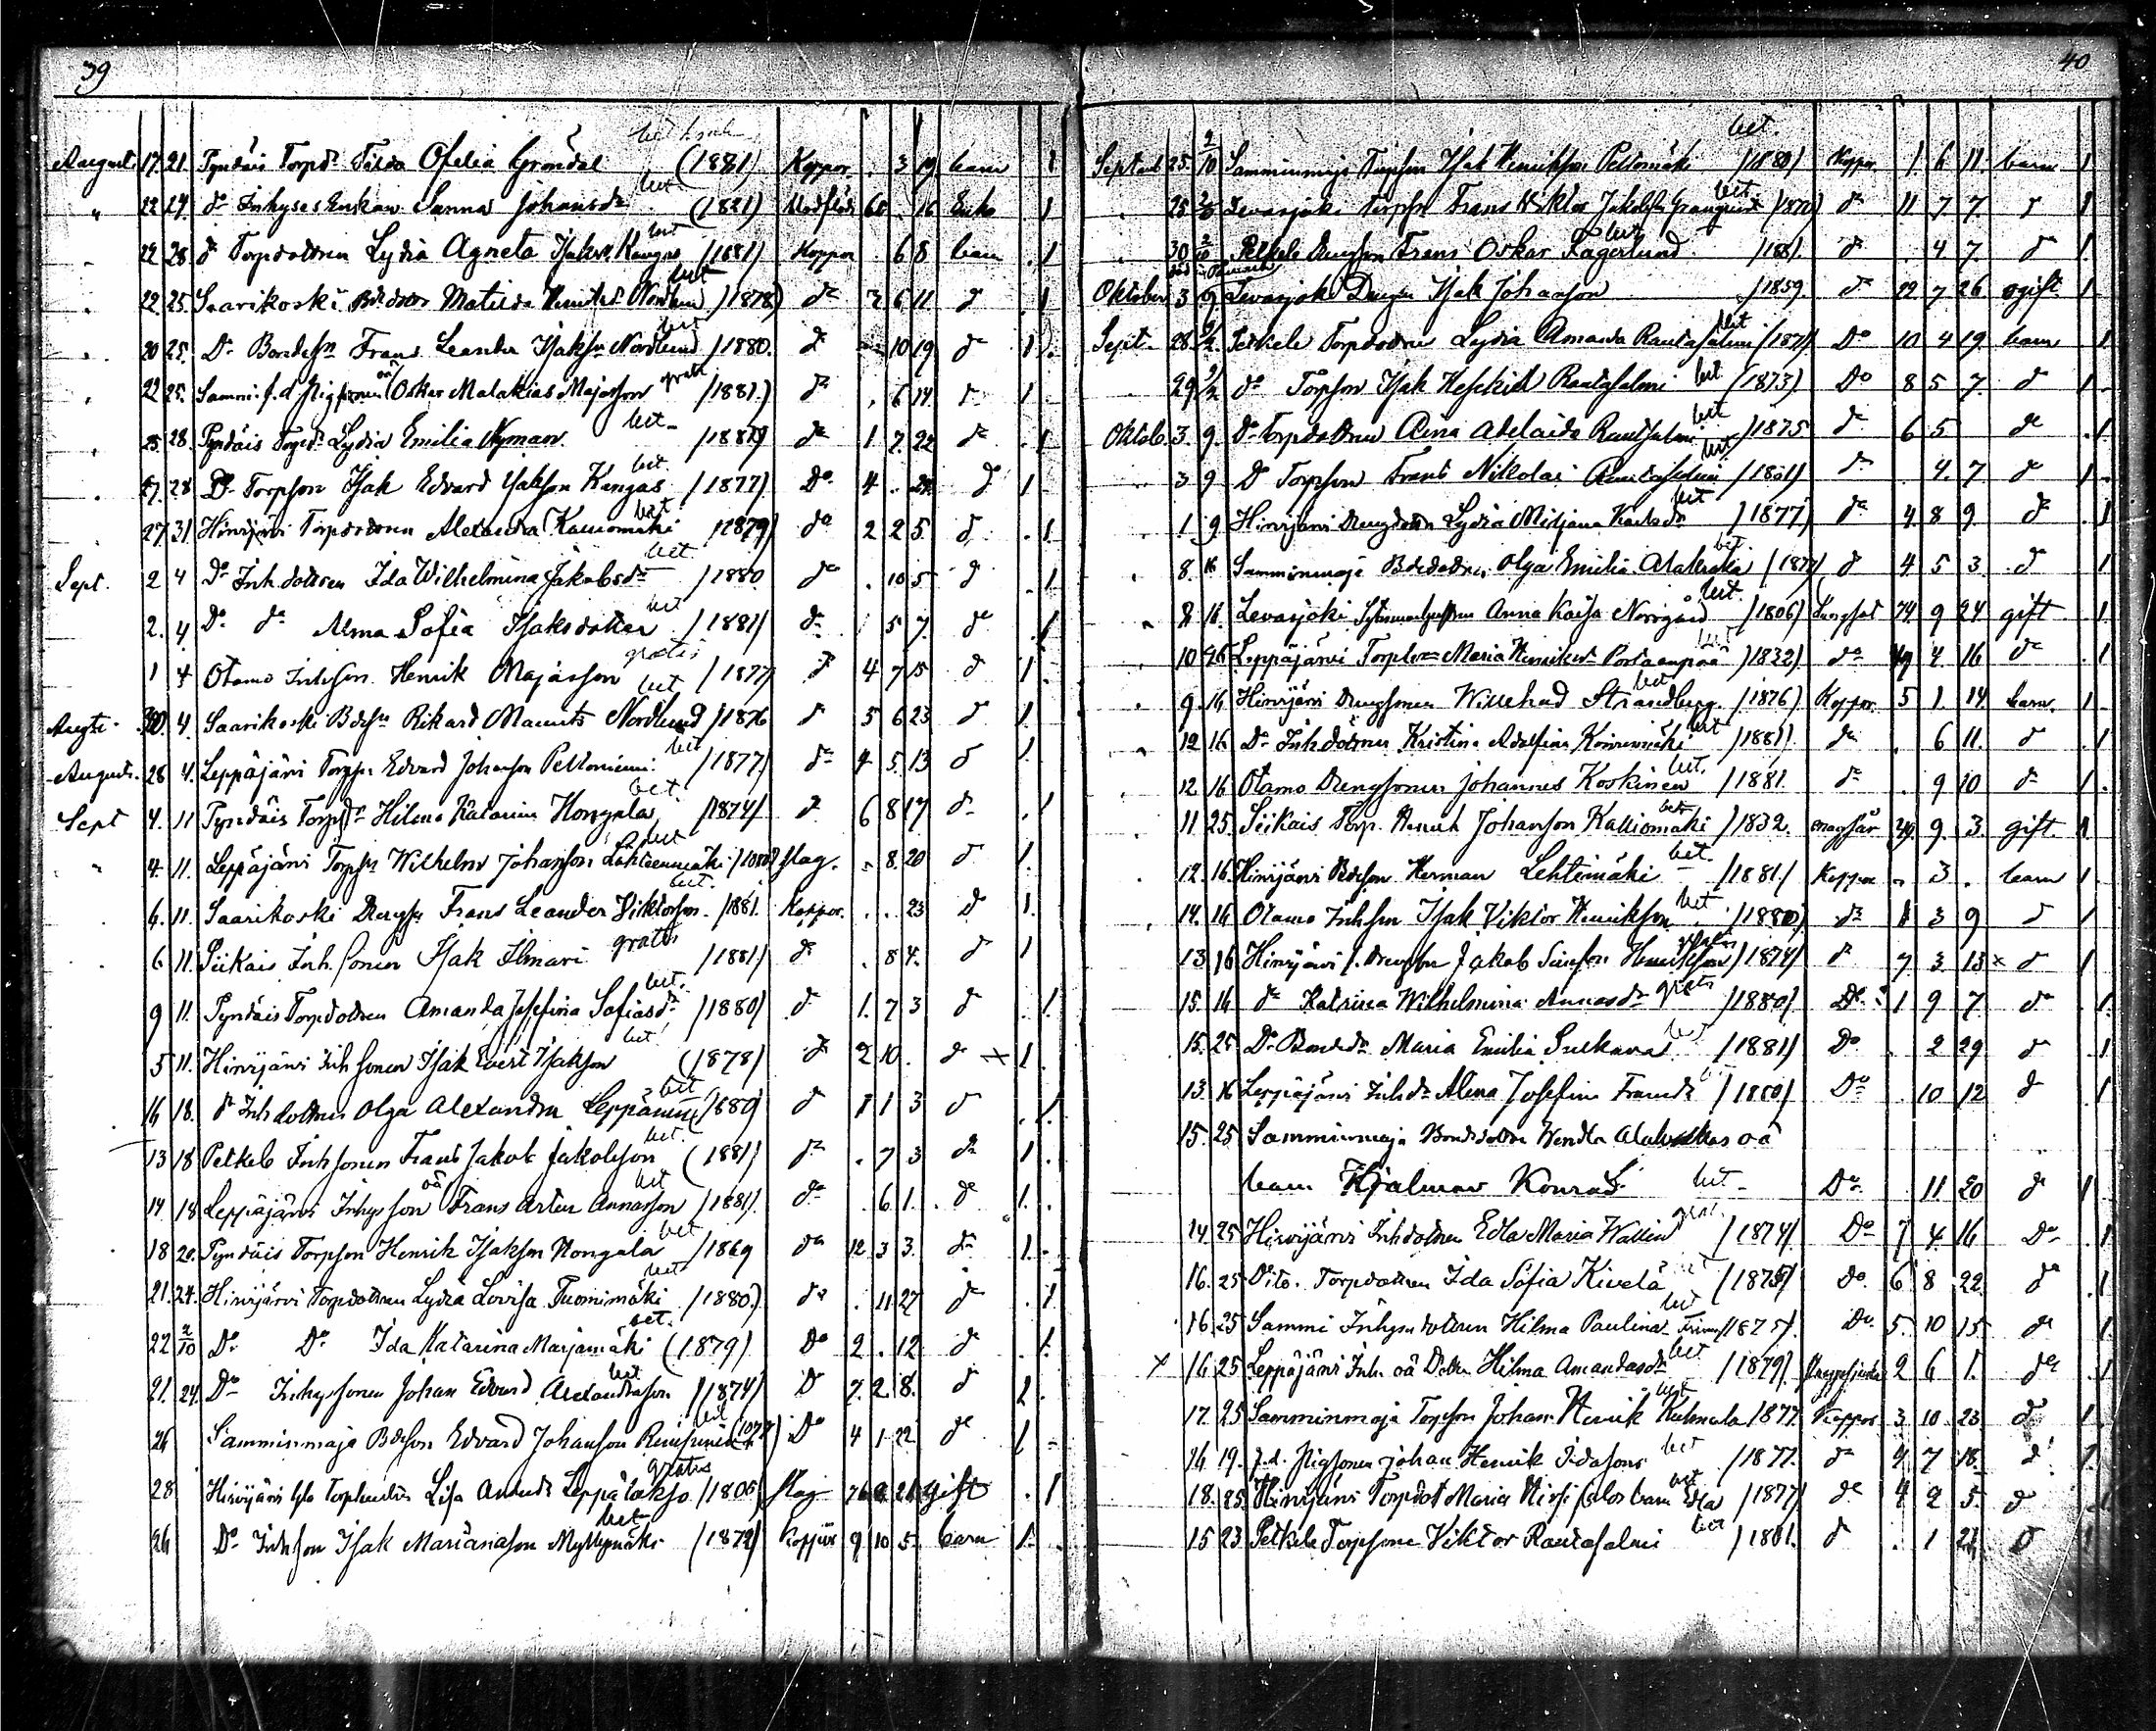 39
August 17. 21. Tyndäis Torpd. Tilda Ofelia Gröndal (1881) Koppor . 3 19 barn 1
" 22 24 do Inhyses Enkan Sanna Johansdr bet. (1821) Modfläck 60 . 16 Enka 1
22 28 do Torpdottren Lydia Agneta Isaksd. Kangas bet /1881) Koppor . 6 8 barn 1
22 25. Saarikoski Bdedotter Matilda Nordlund bet /1878) do 2 6 11 d 1
20 25. Do Bondesn Frans Leander Isaksn Nordlund bet /1880. do 10 19 do 1
22 25. Sammi Oskar Malakias Majasson gratis /1881.) do . 6 14 1
25 28. Tyndäis Torpd. Lydia Emilia Nyman bet do 1 7 22 do 1
27 28 Do Torpson Isak Edvard Isakson Kangas bet. /1877) Do 4 . d 1
27. 31. Hirvijärvi Torpdottren Alexandra bet /1879) do 2 2 5. d 1
Sept. 2 4 Do Inh.dottren Ida Wilhelmina Jakobsdr bet. /1880 do . 10 5 d 1
2. 4 Do do Alma Sofia Isaksdotter bet /1881/ do 5 7. do 1
1 4 Otamo Inhson Henrik Majasson gratis /1877 d 4 7 15 d 1
Augti 4. Saarikoski Bdesn Rikard Maunits Nordlund bet /1876 d 5 6 23 d 1
August. 28 4. Leppäjärvi Torpsn Edvard Johanson Peltoniemi bet /1877/ do 4 5. 13 d 1
Sept 4. 11 Tyndäis Torpdr Hilma Katarina Hongala bet /1874/ d 6 8 17 do 1
4. 11. Leppäjärvi Torpsn Wilhelm Johanson Lähteenmäki bet Slag. 8. 20 d 1.
6. 11. Saarikoski Drengsn Frans Leander Viktorson bet. /1881. Koppor. . . 23 d 1.
6 11. Siikais Inh. sonen Isak Ilmari gratis /1881/ do . 8 4. d 1
9 11. Tyndäis Torpdottren Amanda Josefina Sofiasdr bet. /1880/ d 1. 7 3 d 1.
5 11. Hirvijärvi Inhsonen Isak Evert Isakson bet (1878/ d 2 10. d x 1.
16 18. do Inhdottren Olga Alexandra Leppäniemi bet d 1 1 3 d 1
13 18 Petkele Inhsonen Frans Jakob Jakobson bet. (1881) do . 7 3 do 1
14 18 Leppäjärvi Inhysson oä Frans Artur Annasson bet /1881. do . 6 1. do 1.
18 20. Tyndäis Torpson Henrik Isakson Hongala bet /1869 do 12 3 3. do 1.
21. 24. Hirvijärvi Torpdottren Lydia Lovisa Tuomimäki bet /1880) do . 11 27 d 1.
22 2/10 Do Do Ida Katarina Marjamäki bet. (1879) Do 2 . 12 d 1.
21. 24. Do Inhyssonen Johan Edvard Alexandrason bet /1874/ D 7. 2 8. d 1
26 Samminmaja Bdeson Edvard Johanson bet Do 4 1 22 do 1
28 Hirvijärvi Lisa Leppälakso gratis /1805/ Slag 76 gift 1
26 Do Inhson Isak Marianason Myllymäki bet /1872/ Koppor 9. 10 5. barn 1.
40
Septemb 25 2/10 Samminmaja Torpson Isak Henrikson Peltomäki bet. /1880/ Koppor 1. 6 11. barn 1
25 2/10 Levasjoki Torpsn Frans Viktor Jakobsn Granqvist bet do 11 7 7. d 1
30 2/10 Petkele Drengson Frans Oskar Fagerlund bet /1881. do 4 7. do 1.
Oktober 3 9 Levasjoki Dreng Isak Johanson /1859. do 22 7 26 ogift 1
Sept. 28. Petkele Torpdottren Lydia Amanda Rautasalmi bet /1871/ Do 10 4 19. barn 1.
29 do Torpson Isak Heskiel Rautasalmi bet (1873) Do 8 5 7. d 1.
Oktob. 3. 9. Do Torpdottren Aina Adelaide Rautasalmi bet /1875 d 6 5 do 1
3 9 Do Torpson Frans Nikolai Rautasalmi bet /1881/ do 4. 7 d 1.
1. 9. Hirvijärvi Drengdottr Lydia Karlsdr bet /1877/ do 4 8 9. do 1
8. 16 Samminmaja Bdedottren Olga Emilia Alakoskis bet d 4 5 3. d 1
8 16. Levasjoki Anna Kaisa Norrgård bet. /1806/ Lungsot 74 9 24 gift 1.
10 16 Leppäjärvi Maria Henriksdr Portaanpää bet /1832/ do 49 4 16 do 1
9. 16 Hirvijärvi Drengsonen Willehad Strandberg bet /1876) Koppor 5 1 14. barn. 1
12 16. Do Inhdottren Kristina Adolfina Koivumäki bet /1881/ do . 6 11. d 1
12 16 Otamo Drengsonen Johannes Koskinen bet. /1881. do . 9 10 do 1.
11 25. Siikais Torp. Henrik Johanson Kalliomäki bet /1832. 49. 9. 3 gift 1.
12. 16. Hirvijärvi Bdeson Herman Lehtimäki bet. /1881/ Koppor . 3 . barn 1
14. 16 Otamo Inhson Isak Viktor Henrikson bet /1880) do 1 3 9 d 1
13 16 Hirvijärvi f. Drengsn Jakob Henrikson gratis /1874/ d 7 3 13 x d 1
15. 16 do Katrina Wilhelmina Annasdr gratis /1880/ Do 1 9 7. do 1.
15. 25 Do Bondedr Maria Emilia Sulkava bet /1881/ Do . 2 29 d 1
13. 16 Leppäjärvi Inhdr Alma Josefina Fransdr /1880/ Do . 10 12 d 1
15. 25 Samminmaja Bondedottr Wendla oä
barn Hjalmar Konrad bet Do . 11 20 do 1
14. 25 Hirvijärvi Inhdottren Edla Maria Wallin grat. /1874/ Do 7 4. 16 Do 1
16. 25 Dito. Torpdottren Ida Sofia Kivelä bet Do. 6 8 22. do 1
16 25 Sammi Inhysdottren Hilma Paulina bet Do 5. 10 15 do 1
x 16. 25 Leppäjärvi Inh. oä Dottr Hilma Amandasdr bet /1879/ 2 6 1. do 1
17. 25 Samminmaja Torpson Johan Henrik Kuhmala bet 1877. Koppor 3 10 23 do 1
16 19. f.d. Pigsonen Johan Henrik Idason bet /1877. do 4 7 18. d 1.
18. 25. Hirvijärvi Torpdot Maria barn Eda bet /1877/ do 4 2 5. d 1
15 23. Petkele Torpsone Viktor Rautasalmi bet /1881. d . 1 d 1